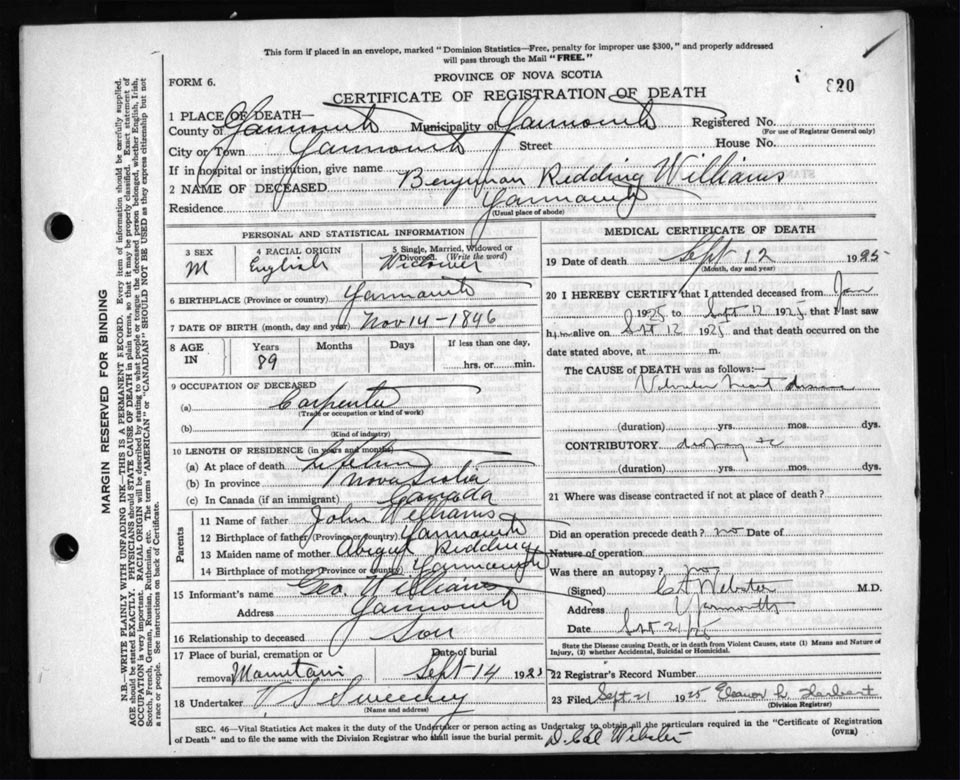 This form if placed in an envelope, marked "Dominion Statistics—Free, penalty for improper use $300," and properly addressed
will pass through the Mail "FREE."
PROVINCE OF NOVA SCOTIA
FORM 6.
820
CERTIFICATE OF REGISTRATION OF DEATH
1 PLACE OF DEATH—
County of Yarmouth Municipality of Yarmouth Registered No.
(For use of Registrar General only)
City or Town Yarmouth Street House No.
If in hospital or institution, give name
2 NAME OF DECEASED Benjman Redding Williams
Residence Yarmouth
(Usual place of abode)
PERSONAL AND STATISTICAL INFORMATION
3 SEX M
4 RACIAL ORIGIN English
5 Single, Married, Widowed or Divorced (Write the word) Widower
6 BIRTHPLACE (Province or country) Yarmouth
7 DATE OF BIRTH (month, day and year) Nov 14 - 1846
8 AGE IN Years 89 Months Days If less than one day, hrs. or min.
9 OCCUPATION OF DECEASED
(a) Carpenter
(Trade or occupation or kind of work)
(b)
(Kind of industry)
10 LENGTH OF RESIDENCE (in years and months)
(a) At place of death
(b) In province Nova Scotia
(c) In Canada (if an immigrant) Canada
Parents
11 Name of father John Williams
12 Birthplace of father (Province or country) Yarmouth
13 Maiden name of mother Abigal Redding
14 Birthplace of mother (Province or country) Yarmouth
15 Informant's name Geo. Williams
Address Yarmouth
16 Relationship to deceased Son
17 Place of burial, cremation or removal Mountain Date of burial Sept 14 1925
18 Undertaker V S Sweeney
(Name and address)
MEDICAL CERTIFICATE OF DEATH
19 Date of death Sept 12 1925
(Month, day and year)
20 I HEREBY CERTIFY that I attended deceased from Jan
1925 to Sept 12 1925, that I last saw
him alive on Sept 12 1925 and that death occurred on the
date stated above, at m.
The CAUSE of DEATH was as follows:—
Valvular heart disease
(duration) yrs. mos. dys.
CONTRIBUTORY dropsy etc
(duration) yrs. mos. dys.
21 Where was disease contracted if not at place of death?
Did an operation precede death? no Date of
Nature of operation
Was there an autopsy? no
(Signed) Webster M.D.
Address Yarmouth
Date Sept 21/25
State the Disease causing Death, or in death from Violent Causes, state (1) Means and Nature of
Injury, (2) whether Accidental, Suicidal or Homicidal.
22 Registrar's Record No.
23 Filed Sept 21 1925 Eleanor L. Lambert
(Division Registrar)
SEC. 46—Vital Statistics Act makes it the duty of the Undertaker or person acting as Undertaker to obtain all the particulars required in the "Certificate of Registration
of Death" and to file the same with the Division Registrar who shall issue the burial permit. (OVER)
D. Cal Webster
MARGIN RESERVED FOR BINDING
N.B.—WRITE PLAINLY WITH UNFADING INK—THIS IS A PERMANENT RECORD. Every item of information should be carefully supplied.
AGE should be stated EXACTLY. PHYSICIANS should STATE CAUSE OF DEATH in plain terms, so that it may be properly classified. Exact statement of
OCCUPATION is very important. RACIAL ORIGIN will be described by stating to what people or tongue the deceased person belonged, whether English, Irish,
Scotch, French, German, Russian, Ruthenian, etc. The terms "AMERICAN" or "CANADIAN" SHOULD NOT BE USED as they express citizenship but not
a race or people. See instructions on back of Certificate.